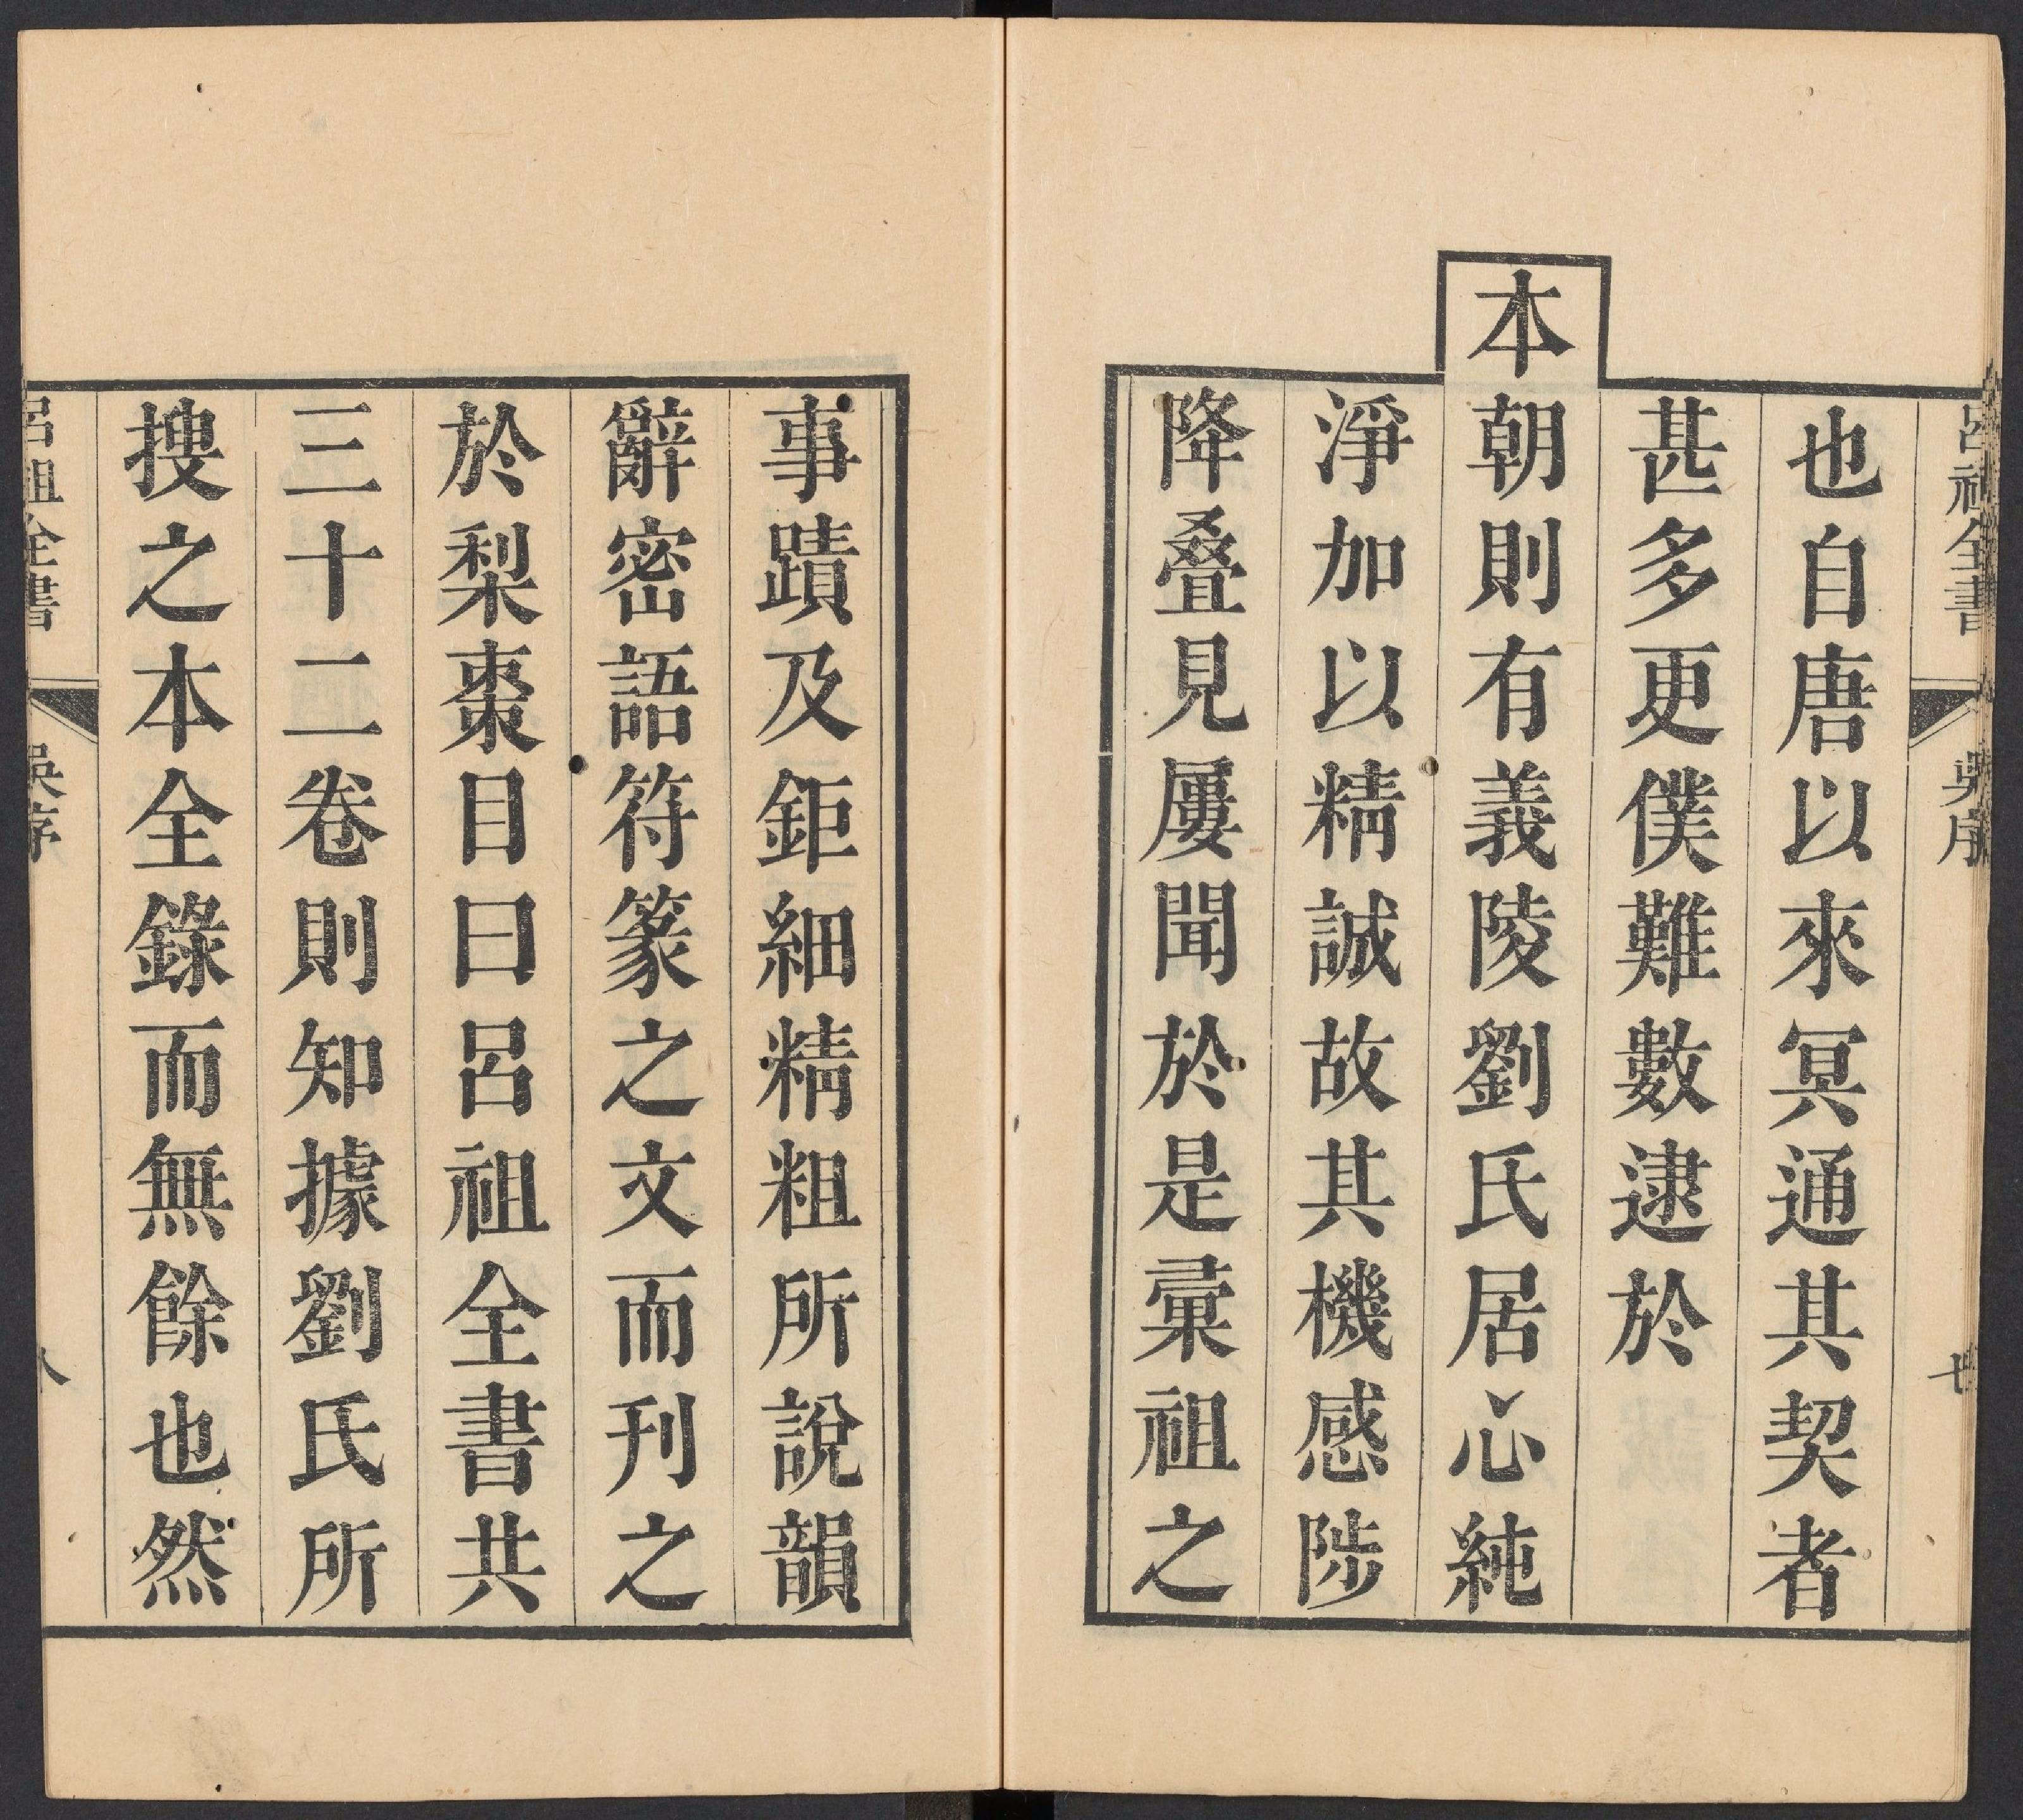 呂祖全書
吳序
七
也自唐以來冥通其契者
甚多更僕難數逮於
本朝則有義陵劉氏居心純
淨加以精誠故其機感陟
降叠見屢聞於是彙祖之
事蹟及鉅細精粗所說韻
辭密語符篆之文而刊之
於梨棗目曰呂祖全書共
三十二卷則知據劉氏所
搜之本全錄而無餘也然
呂祖全書
吳序
八